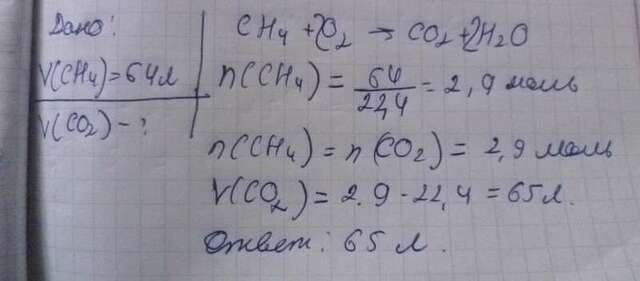 Дано:
V(CH4)=64л
V(CO2)-?
CH4 + 2O2 → CO2 + 2H2O
n(CH4) = 64/22,4 = 2,9 моль
n(CH4) = n(CO2) = 2,9 моль
V(CO2) = 2.9 · 22,4 = 65 л.
Ответ: 65 л.